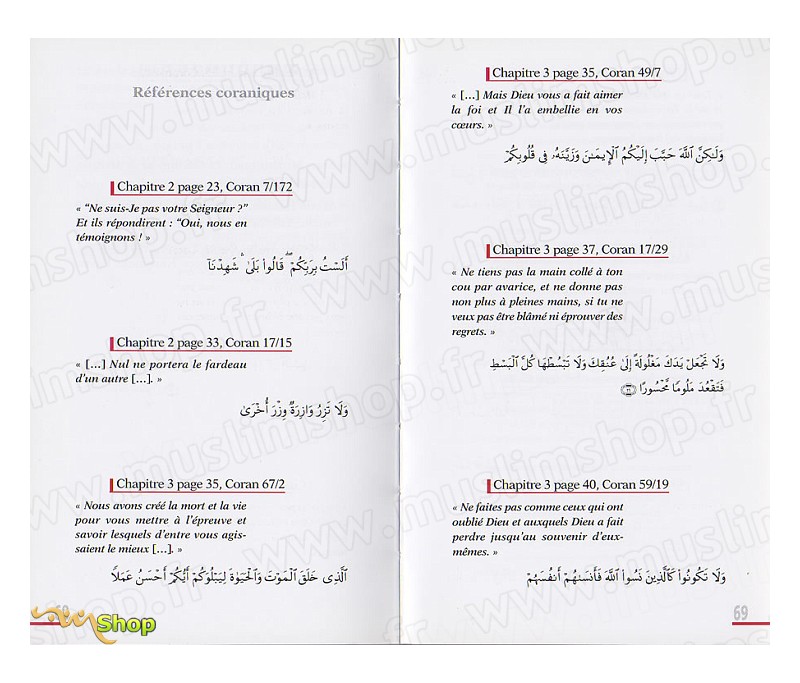 Références coraniques
Chapitre 2 page 23, Coran 7/172
« “Ne suis-Je pas votre Seigneur ?”
Et ils répondirent : “Oui, nous en
témoignons ! »
أَلَسْتُ بِرَبِّكُمْ ۖ قَالُوا۟ بَلَىٰ ۛ شَهِدْنَآ
Chapitre 2 page 33, Coran 17/15
« […] Nul ne portera le fardeau
d’un autre […]. »
وَلَا تَزِرُ وَازِرَةٌ وِزْرَ أُخْرَىٰ
Chapitre 3 page 35, Coran 67/2
« Nous avons créé la mort et la vie
pour vous mettre à l’épreuve et
savoir lesquels d’entre vous agis-
saient le mieux […]. »
ٱلَّذِى خَلَقَ ٱلْمَوْتَ وَٱلْحَيَوٰةَ لِيَبْلُوَكُمْ أَيُّكُمْ أَحْسَنُ عَمَلًا
Shop
Chapitre 3 page 35, Coran 49/7
« […] Mais Dieu vous a fait aimer
la foi et Il l’a embellie en vos
cœurs. »
وَلَـٰكِنَّ ٱللَّهَ حَبَّبَ إِلَيْكُمُ ٱلْإِيمَـٰنَ وَزَيَّنَهُۥ فِى قُلُوبِكُمْ
Chapitre 3 page 37, Coran 17/29
« Ne tiens pas la main collé à ton
cou par avarice, et ne donne pas
non plus à pleines mains, si tu ne
veux pas être blâmé ni éprouver des
regrets. »
وَلَا تَجْعَلْ يَدَكَ مَغْلُولَةً إِلَىٰ عُنُقِكَ وَلَا تَبْسُطْهَا كُلَّ ٱلْبَسْطِ
فَتَقْعُدَ مَلُومًا مَّحْسُورًا
Chapitre 3 page 40, Coran 59/19
« Ne faites pas comme ceux qui ont
oublié Dieu et auxquels Dieu a fait
perdre jusqu’au souvenir d’eux-
mêmes. »
وَلَا تَكُونُوا۟ كَٱلَّذِينَ نَسُوا۟ ٱللَّهَ فَأَنسَىٰهُمْ أَنفُسَهُمْ
69
www.muslimshop.fr